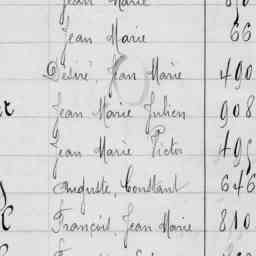 Jean Marie 810
Jean Marie 66
Désiré, Jean Marie 490
Jean Marie Julien 908
Jean Marie Victor 495
Auguste, Constant 646
François, Jean Marie 810